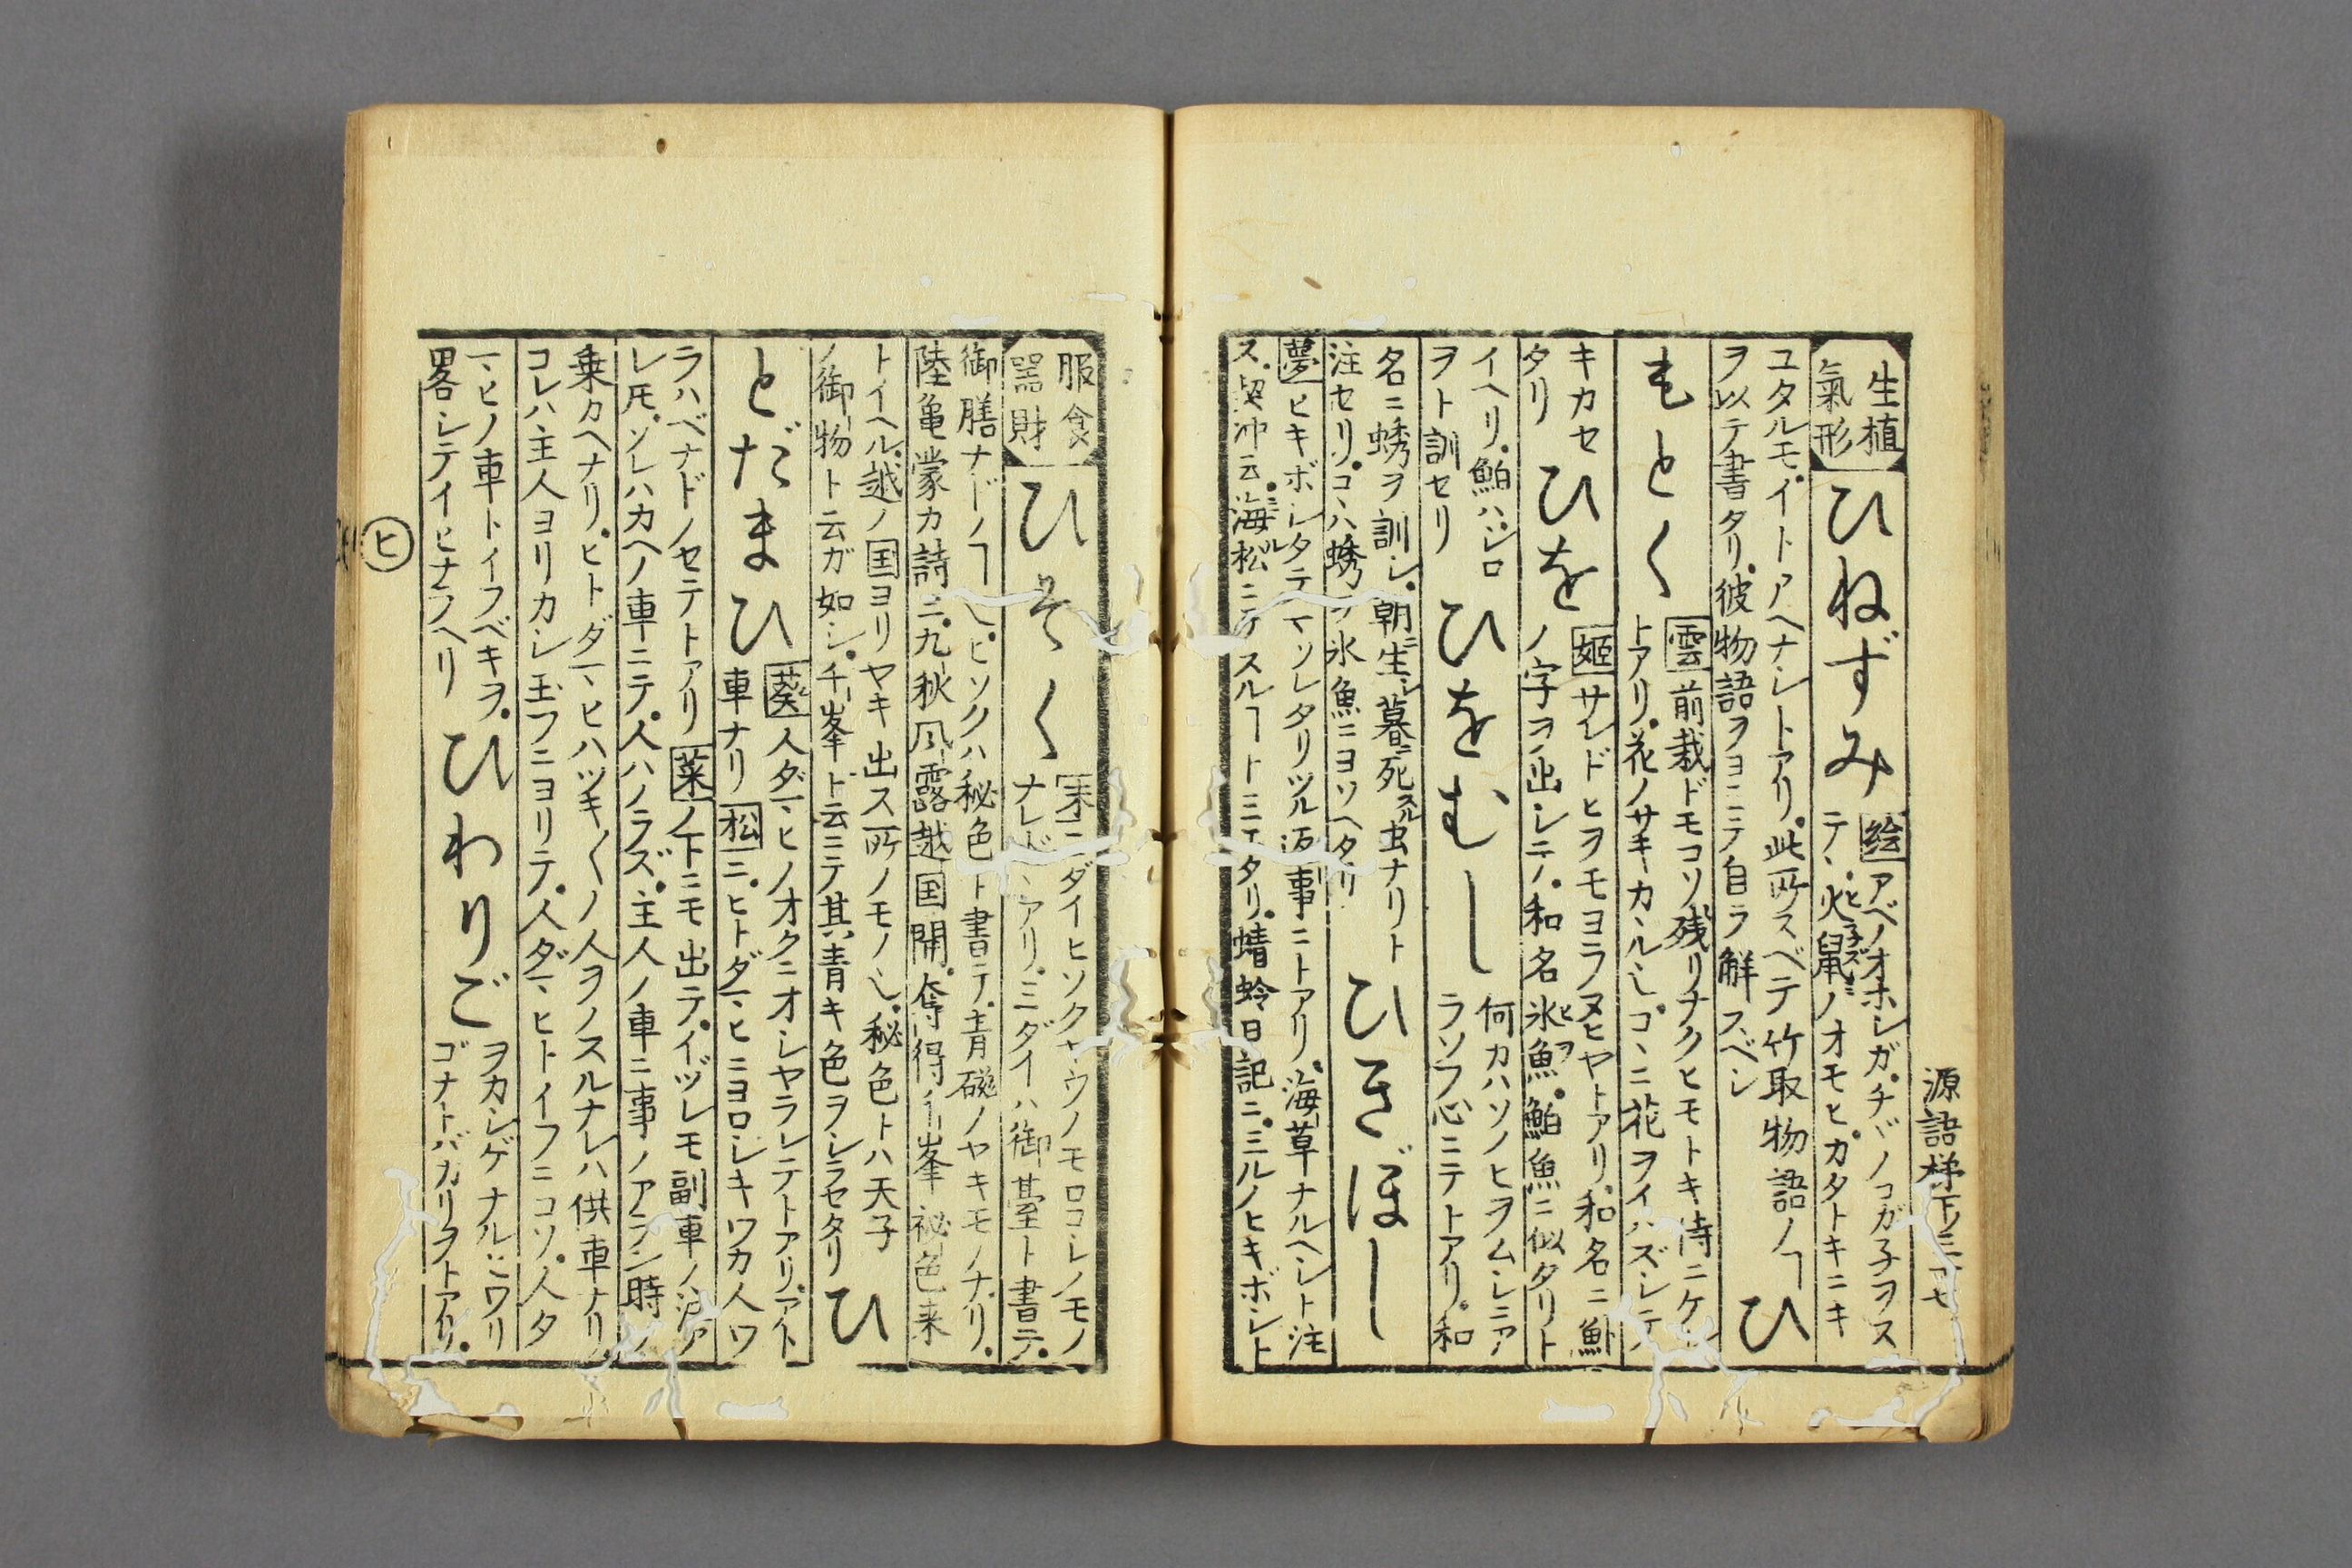 源語梯下ノ三
生植
氣形
ひねずみ
絵アベノオホシガチヾノコガ子ヲス
テヽ火鼠ノオモヒカタトキニキ
ユタルモイトアヘナシトアリ此所スベテ竹取物語ノヿ
ヲ以テ書タリ彼物語ヲヨミテ自ラ解スベシ
ひ
もとく
雲前栽ドモコソ残リナクヒモトキ侍ニケ
トアリ花ノサキカヽル也コヽニ花ヲイハズシテ
キカセ
タリ
ひを
姫サレドヒヲモヨラヌヒヤトアリ和名ニ
ノ字ヲ出シテ和名氷魚鮊魚ニ似タリト
イヘリ鮊ハシロ
ヲト訓セリ
ひをむし
何カハソノヒヲムシニア
ラソフ心ニテトアリ和
名ニ蜏ヲ訓シ朝生暮死スル虫ナリト
注セリコヽハ蜏ヲ氷魚ニヨソヘタリ
ひきぼし
夢ヒキボシタテマツレタリツル返事ニトアリ海草ナルヘシト注
ス契沖云海松ニテスルヿト三エタリ蜻蛉日記ニ三ルノヒキボシト
服食
器財
ひそく
末ミダイヒソクヤウノモロコシノモノ
ナレドヽアリミダイハ御䑓ト書テ
御膳ナドノヿ也ヒソクハ秘色ト書テ青磁ノヤキモノナリ
陸亀蒙カ詩ニ九秋風露越国開奪得千峯秘色来
トイヘル越ノ国ヨリヤキ出ス所ノモノ也秘色トハ天子
ノ御物ト云ガ如シ千峯ト云ニテ其青キ色ヲシラセタリ
ひ
とだまひ
葵人ダマヒノオクニオシヤラレテトアリアト
車ナリ松ニヒトダマヒニヨロシキワカ人ワ
ラハベナドノセテトアリ菜ノ下ニモ出テイヅレモ副車ノ
レ𪜈ソレハカヘノ車ニテ人ハノラズ主人ノ車ニ事ノアラン時ノ
乗カヘナリヒトダマヒハツキ〳〵ノ人ヲノスルナレハ供車ナリ
コレハ主人ヨリカシ玉フニヨリテ人ダマヒトイフニコソ人タ
マヒノ車トイフベキヲ
畧シテイヒナラヘリ
ひわりご
ヲカシゲナルヒワリ
ゴナトバカリヲトアリ
ヒ